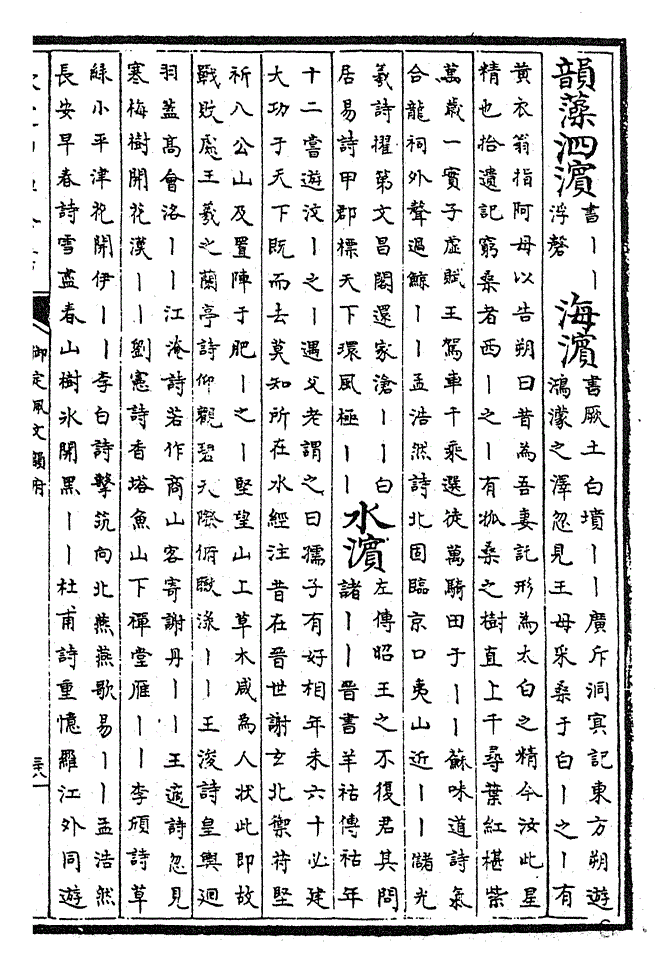 韻藻泗濱書丨丨
浮磬
海濱書厥土白墳丨丨廣斥洞冥記東方朔遊
鴻濛之澤忽見王母采桑于白丨之丨有
黃衣翁指阿母以告朔曰昔為吾妻託形為太白之精今汝此星
精也拾遺記窮桑者西丨之丨有孤桑之樹直上千尋葉紅椹紫
萬歲一實子虛賦王駕車千乘選徒萬騎田于丨丨蘇味道詩氣
合龍祠外聲過鯨丨丨孟浩然詩北固臨京口夷山近丨丨儲光
羲詩擢第文昌閣還家滄丨丨白
居易詩甲郡標天下環風極丨丨
水濱左傳昭王之不復君其問
諸丨丨晉書羊祜傳祜年
十二嘗遊汶丨之丨遇父老謂之曰孺子有好相年未六十必建
大功于天下既而去莫知所在水經注昔在晉世謝玄北禦苻堅
祈八公山及置陣于肥丨之丨堅望山上草木咸為人狀此即故
戰敗處王羲之蘭亭詩仰觀碧天際俯瞰淥丨丨王浚詩皇輿迴
羽蓋高會洛丨丨江淹詩若作商山客寄謝丹丨丨王適詩忽見
寒梅樹開花漢丨丨劉憲詩香塔魚山下禪堂雁丨丨李頎詩草
綠小平津花開伊丨丨李白詩擊筑向北燕燕歌易丨丨孟浩然
長安早春詩雪盡春山樹冰開黑丨丨杜甫詩重憶羅江外同遊
御定佩文韻府